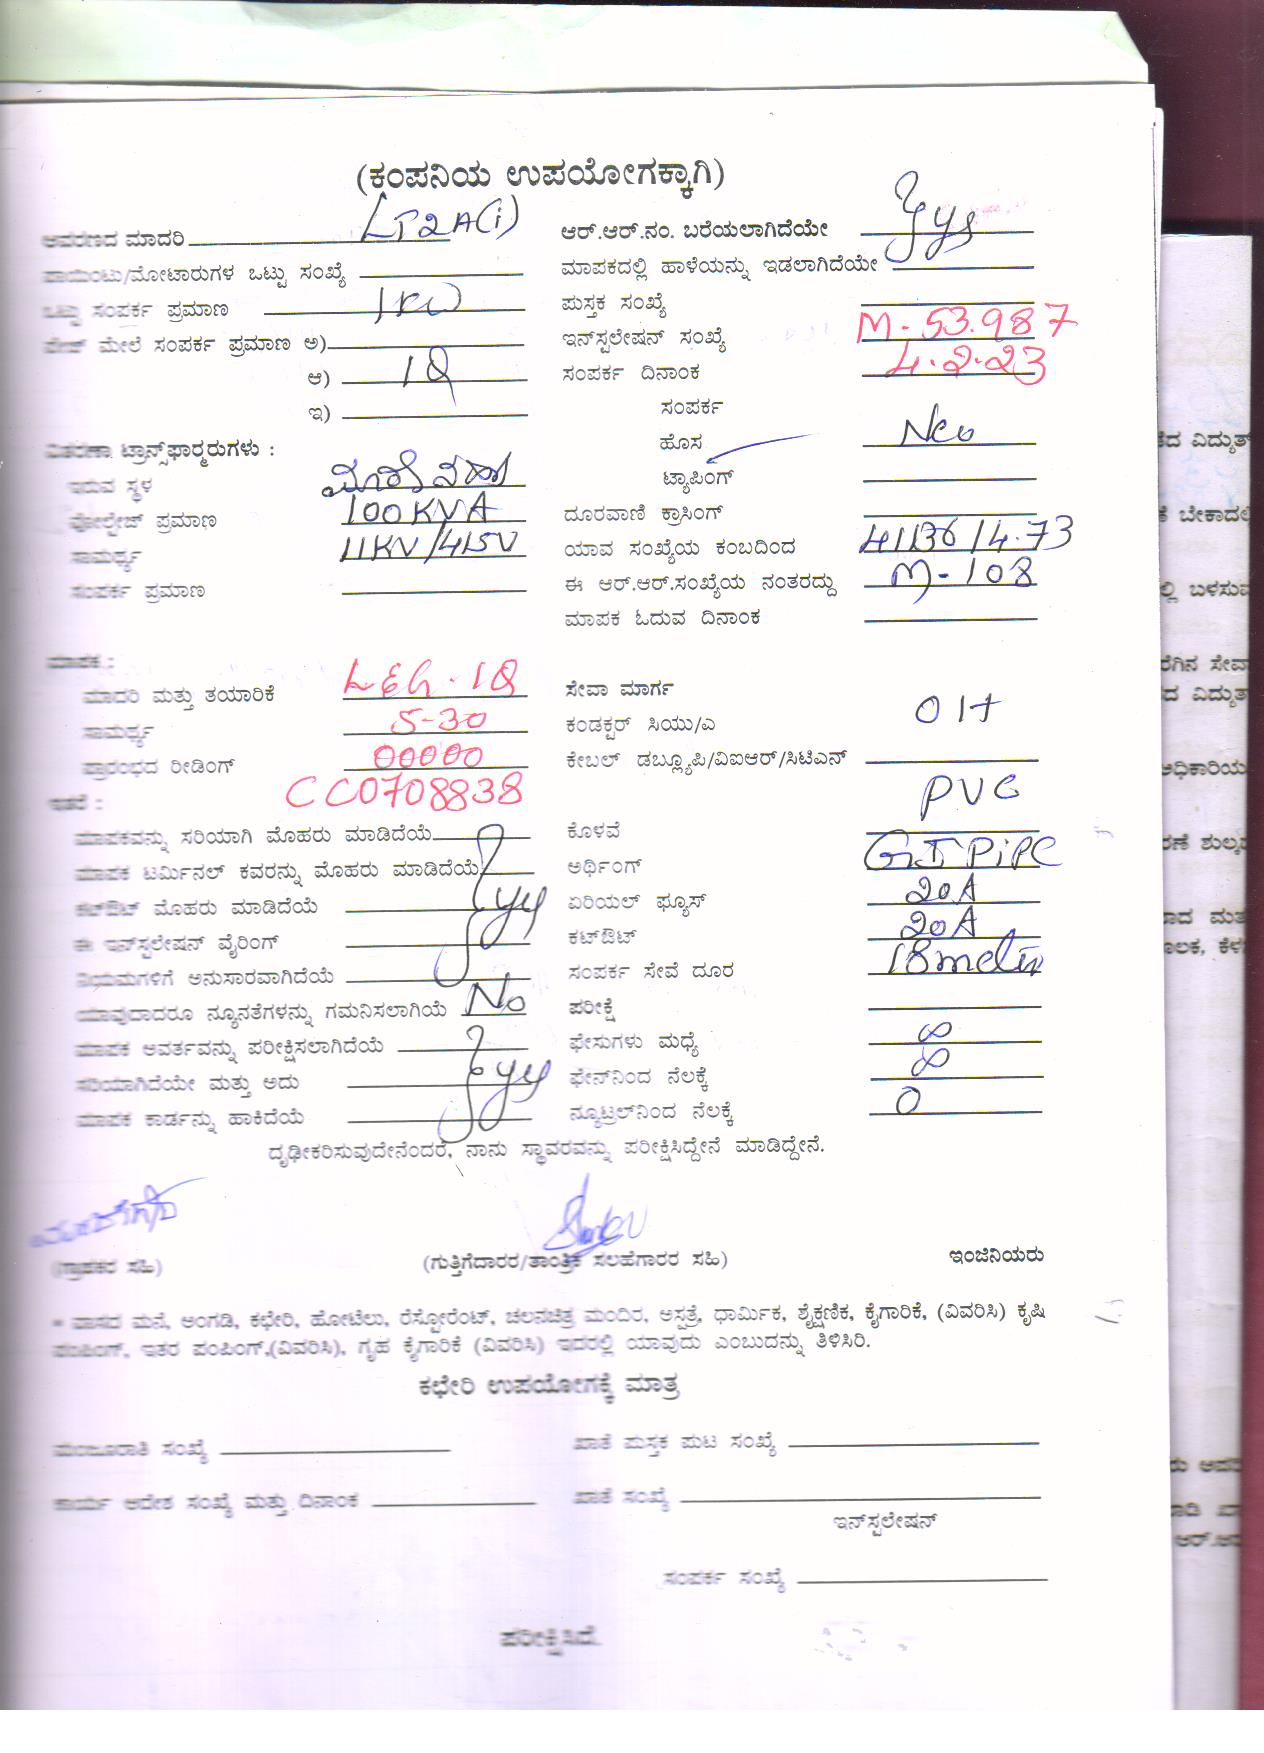 (ಕಂಪನಿಯ ಉಪಯೋಗಕ್ಕಾಗಿ)
ಆವರಣದ ಮಾದರಿ LT2A(i)
ಪಾಯಿಂಟು/ಮೋಟಾರುಗಳ ಒಟ್ಟು ಸಂಖ್ಯೆ
ಒಟ್ಟು ಸಂಪರ್ಕ ಪ್ರಮಾಣ 1KW
ಮೇಲೆ ಸಂಪರ್ಕ ಪ್ರಮಾಣ ಅ)
ಆ)
ಇ)
ವಿತರಣಾ ಟ್ರಾನ್ಸ್‌ಫಾರ್ಮರುಗಳು :
ಇರುವ ಸ್ಥಳ
ವೋಲ್ಟೇಜ್ ಪ್ರಮಾಣ 100KVA
ಸಾಮರ್ಥ್ಯ 11KV/415V
ಸಂಪರ್ಕ ಪ್ರಮಾಣ
ಆರ್.ಆರ್.ನಂ. ಬರೆಯಲಾಗಿದೆಯೇ
ಮಾಪಕದಲ್ಲಿ ಹಾಳೆಯನ್ನು ಇಡಲಾಗಿದೆಯೇ
ಪುಸ್ತಕ ಸಂಖ್ಯೆ
ಇನ್‌ಸ್ಟಲೇಷನ್ ಸಂಖ್ಯೆ M-53987
ಸಂಪರ್ಕ ದಿನಾಂಕ 4.2.23
ಸಂಪರ್ಕ
ಹೊಸ New
ಟ್ಯಾಪಿಂಗ್
ದೂರವಾಣಿ ಕ್ರಾಸಿಂಗ್
ಯಾವ ಸಂಖ್ಯೆಯ ಕಂಬದಿಂದ 41136/4.73
ಈ ಆರ್.ಆರ್.ಸಂಖ್ಯೆಯ ನಂತರದ್ದು M-108
ಮಾಪಕ ಓದುವ ದಿನಾಂಕ
ಮಾಪಕ :
ಮಾದರಿ ಮತ್ತು ತಯಾರಿಕೆ
ಸಾಮರ್ಥ್ಯ 5-30
ಪ್ರಾರಂಭದ ರೀಡಿಂಗ್ 00000
CC0708838
ಇತರೆ :
ಮಾಪಕವನ್ನು ಸರಿಯಾಗಿ ಮೊಹರು ಮಾಡಿದೆಯೆ
ಮಾಪಕ ಟರ್ಮಿನಲ್ ಕವರನ್ನು ಮೊಹರು ಮಾಡಿದೆಯೆ
ಕಟ್‌ಔಟ್ ಮೊಹರು ಮಾಡಿದೆಯೆ
ಈ ಇನ್‌ಸ್ಟಲೇಷನ್ ವೈರಿಂಗ್
ನಿಯಮಗಳಿಗೆ ಅನುಸಾರವಾಗಿದೆಯೆ
ಯಾವುದಾದರೂ ನ್ಯೂನತೆಗಳನ್ನು ಗಮನಿಸಲಾಗಿಯೆ No
ಮಾಪಕ ಅವರ್ತವನ್ನು ಪರೀಕ್ಷಿಸಲಾಗಿದೆಯೆ
ಸರಿಯಾಗಿದೆಯೇ ಮತ್ತು ಅದು
ಮಾಪಕ ಕಾರ್ಡನ್ನು ಹಾಕಿದೆಯೆ
ಸೇವಾ ಮಾರ್ಗ
ಕಂಡಕ್ಟರ್ ಸಿಯು/ಎ OH
ಕೇಬಲ್ ಡಬ್ಲ್ಯೂಪಿ/ವಿಐಆರ್/ಸಿಟಿಎನ್
PVC
ಕೊಳವೆ
ಅರ್ಥಿಂಗ್ GI Pipe
ಏರಿಯಲ್ ಫ್ಯೂಸ್ 20A
ಕಟ್‌ಔಟ್ 20A
ಸಂಪರ್ಕ ಸೇವೆ ದೂರ 18meter
ಪರೀಕ್ಷೆ
ಫೇಸುಗಳು ಮಧ್ಯೆ ∞
ಫೇನ್‌ನಿಂದ ನೆಲಕ್ಕೆ ∞
ನ್ಯೂಟ್ರಲ್‌ನಿಂದ ನೆಲಕ್ಕೆ 0
ದೃಢೀಕರಿಸುವುದೇನೆಂದರೆ, ನಾನು ಸ್ಥಾವರವನ್ನು ಪರೀಕ್ಷಿಸಿದ್ದೇನೆ ಮಾಡಿದ್ದೇನೆ.
(ಗ್ರಾಹಕರ ಸಹಿ) (ಗುತ್ತಿಗೆದಾರರ/ತಾಂತ್ರಿಕ ಸಲಹೆಗಾರರ ಸಹಿ) ಇಂಜಿನಿಯರು
* ವಾಸದ ಮನೆ, ಅಂಗಡಿ, ಕಛೇರಿ, ಹೋಟೆಲು, ರೆಸ್ಟೋರೆಂಟ್, ಚಲನಚಿತ್ರ ಮಂದಿರ, ಅಸ್ಪತ್ರೆ, ಧಾರ್ಮಿಕ, ಶೈಕ್ಷಣಿಕ, ಕೈಗಾರಿಕೆ, (ವಿವರಿಸಿ) ಕೃಷಿ
ಪಂಪಿಂಗ್, ಇತರ ಪಂಪಿಂಗ್,(ವಿವರಿಸಿ), ಗೃಹ ಕೈಗಾರಿಕೆ (ವಿವರಿಸಿ) ಇದರಲ್ಲಿ ಯಾವುದು ಎಂಬುದನ್ನು ತಿಳಿಸಿರಿ.
ಕಛೇರಿ ಉಪಯೋಗಕ್ಕೆ ಮಾತ್ರ
ಮಂಜೂರಾತಿ ಸಂಖ್ಯೆ ಖಾತೆ ಪುಸ್ತಕ ಪುಟ ಸಂಖ್ಯೆ
ಕಾರ್ಯ ಆದೇಶ ಸಂಖ್ಯೆ ಮತ್ತು ದಿನಾಂಕ ಖಾತೆ ಸಂಖ್ಯೆ
ಇನ್‌ಸ್ಟಲೇಷನ್
ಸಂಪರ್ಕ ಸಂಖ್ಯೆ
ಪರೀಕ್ಷಿಸಿದೆ.